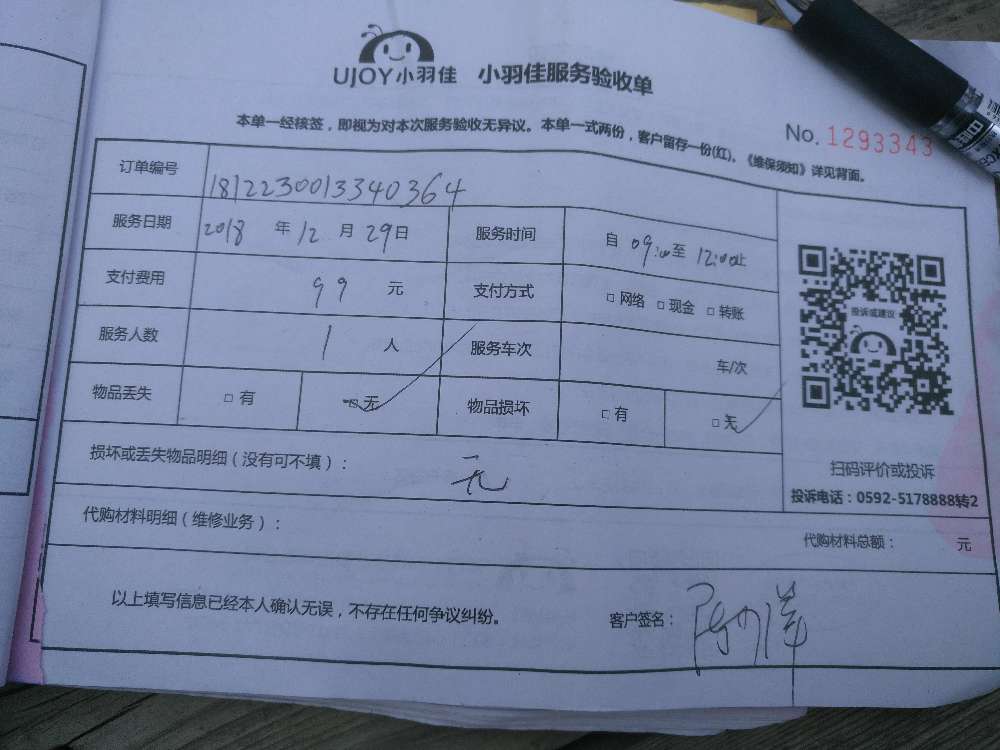 UJOY小羽佳 小羽佳服务验收单
本单一经核签，即视为对本次服务验收无异议。本单一式两份，客户留存一份(红)。《维保须知》详见背面。
No. 1293343
订单编号 1812230013340364
服务日期 2018 年 12 月 29 日 服务时间 自 09:00 至 12:00 止
支付费用 99 元 支付方式 □ 网络 □ 现金 □ 转账
服务人数 1 人 服务车次 车/次
物品丢失 □ 有 □ 无 物品损坏 □ 有 □ 无
损坏或丢失物品明细（没有可不填）： 无
代购材料明细（维修业务）： 代购材料总额： 元
以上填写信息已经本人确认无误，不存在任何争议纠纷。 客户签名：
投诉或建议
扫码评价或投诉
投诉电话：0592-5178888转2